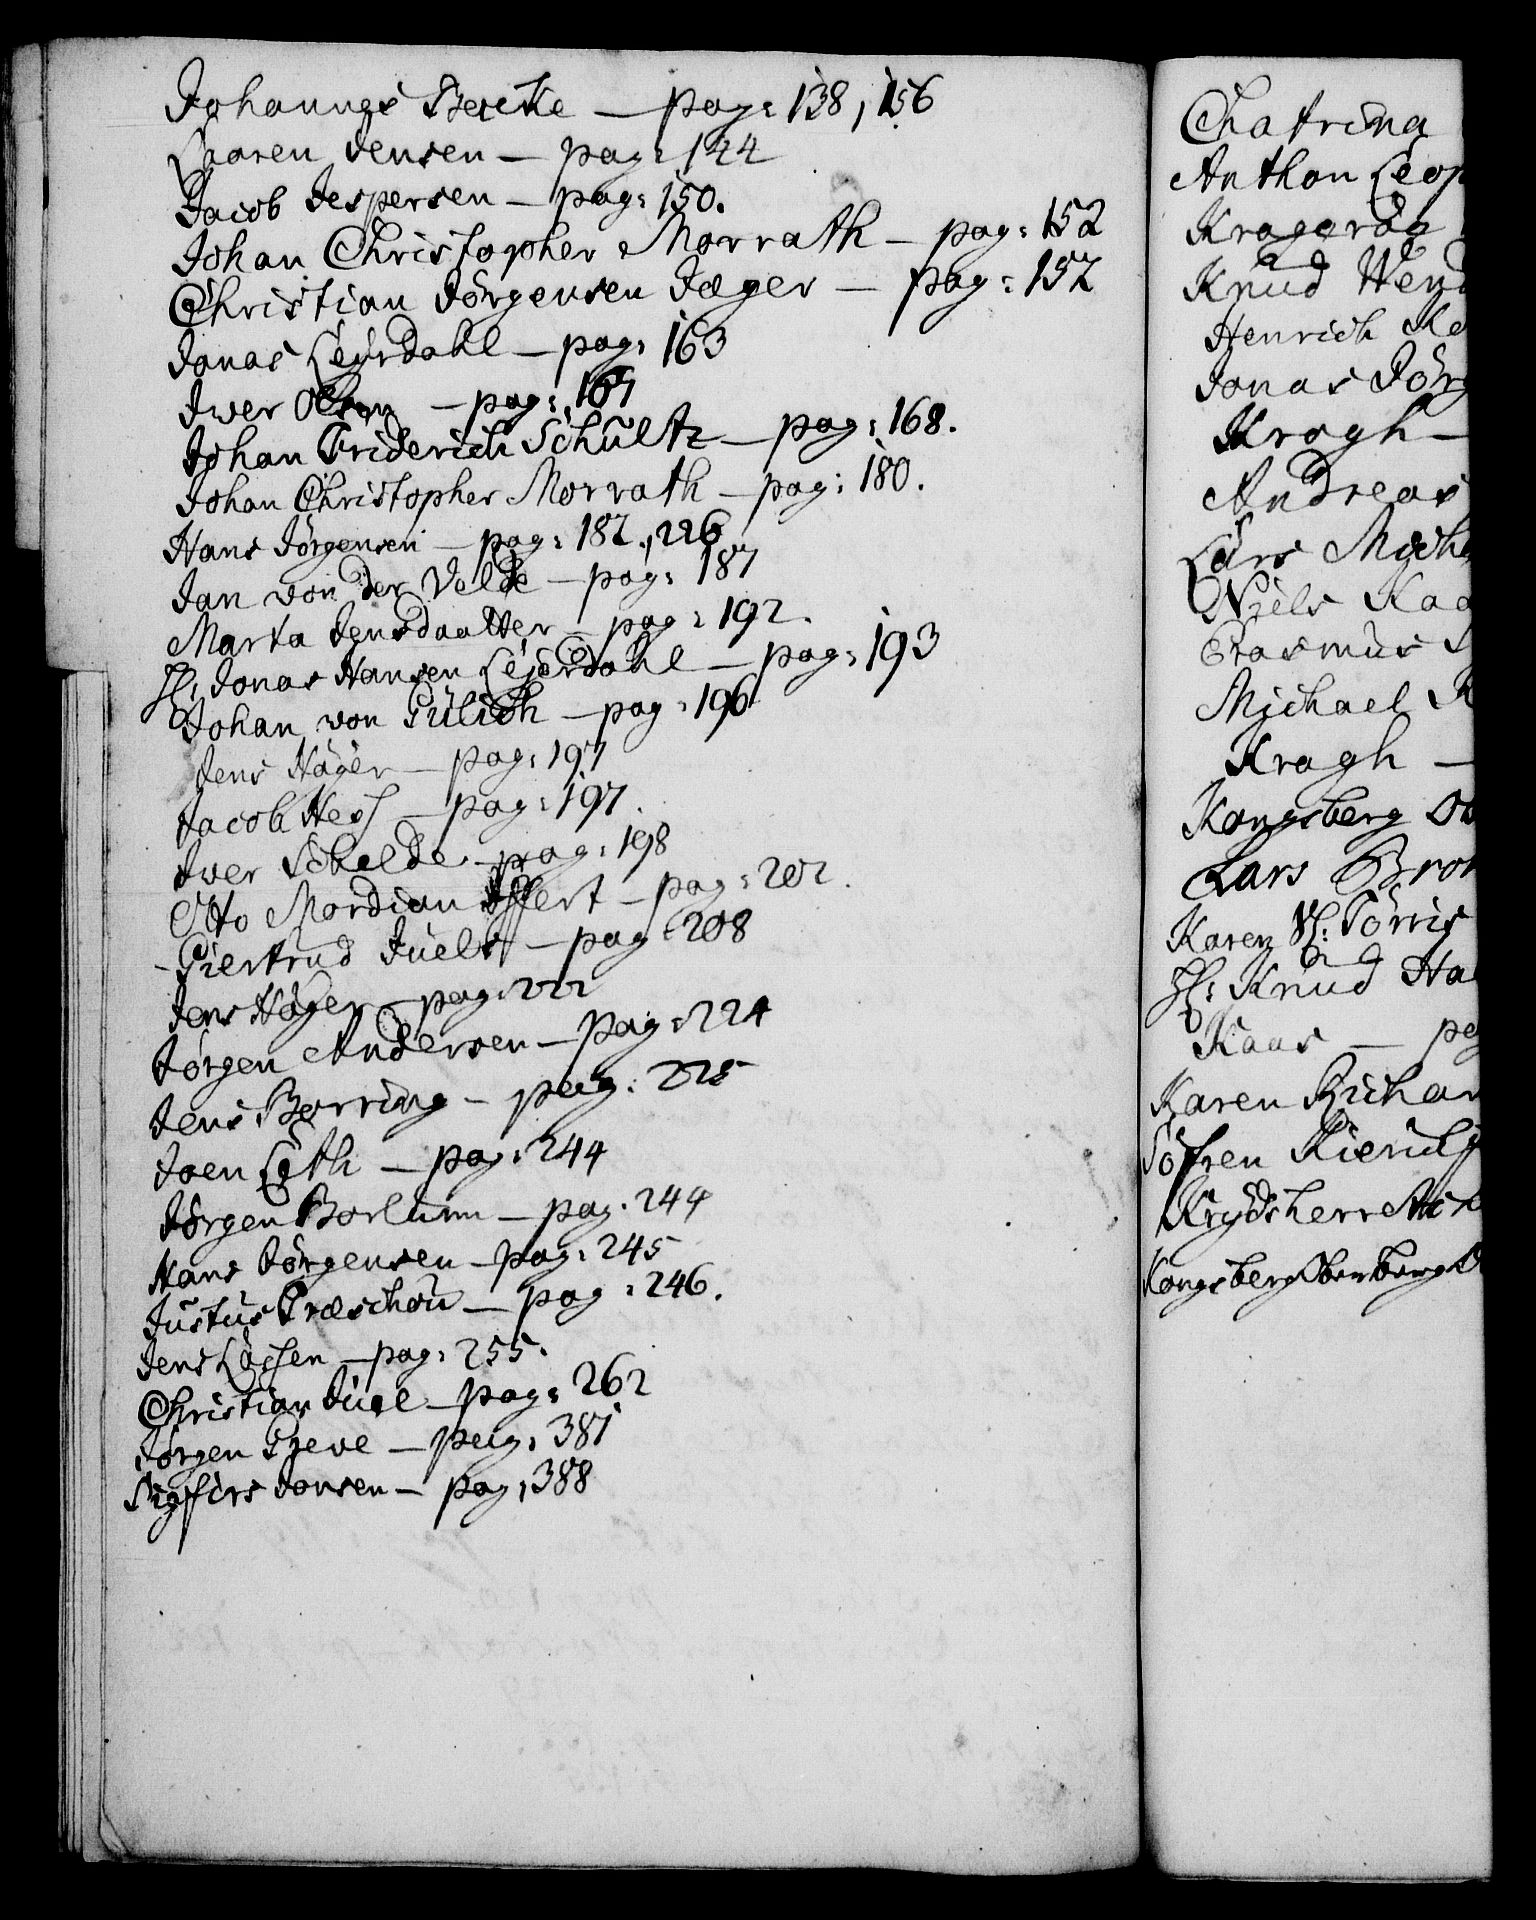 Johannes Becke — pag: 138, 156
Laaren Jensen — pag: 144
Jacob Jespersen — pag: 150.
Johan Christopher Morrath — pag: 152
Christian Jörgensen Jæger — pag: 152
Jonas Leyrdahl — pag: 163
Iver Olsen — pag: 167
Johan Friderich Schültz — pag: 168.
Johan Christopher Morrath — pag: 180.
Hans Jörgensen — pag: 182, 226
Jan von der Velde — pag: 187
Marta Jensdaatter — pag: 192.
Sl: Jonas Hansen Lejerdahl — pag: 193
Johan von Gülich — pag: 196
Jens Höyer — pag: 197
Jacob Hess — pag: 197.
Iver Schelde — pag: 198
Otto Mordian Iffert — pag: 202.
Giertrud Juels — pag: 208
Jens Höyer — pag: 222
Jörgen Andersen — pag: 224
Jens Berring — pag: 225
Joen Leth — pag: 244
Jörgen Borlum — pag. 244
Hans Jörgensen — pag: 245
Justus Træschou — pag: 246.
Jens Lassen — pag: 255.
Christian Juel — pag: 262
Jörgen Pjeve — pag: 381
Sigfürs Jonsen — pag: 388
Chatrina
Anthon Leop
Krageröe
Knud Wend
Henrich Ke
Jonas Jörg
Kragh —
Andreas
Lars Miche
Niels Kaa
Erasmus
Michael K
Kragh —
Kongsberg Ob
Lars Bron
Karen Sl: Törris
Sl: Knud Ha
Kaas — pag
Karen Richar
Söfren Kierulf
Krydsherre
Kongsberg Oberberg